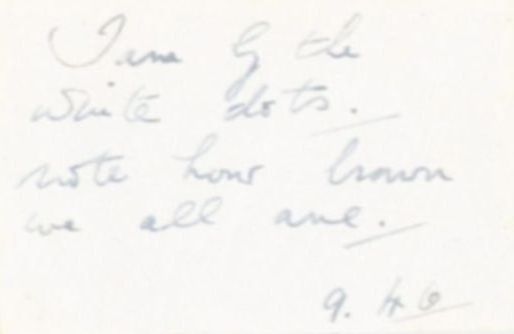 I am by the
white dots.
note how brown
we all are.
9. 46